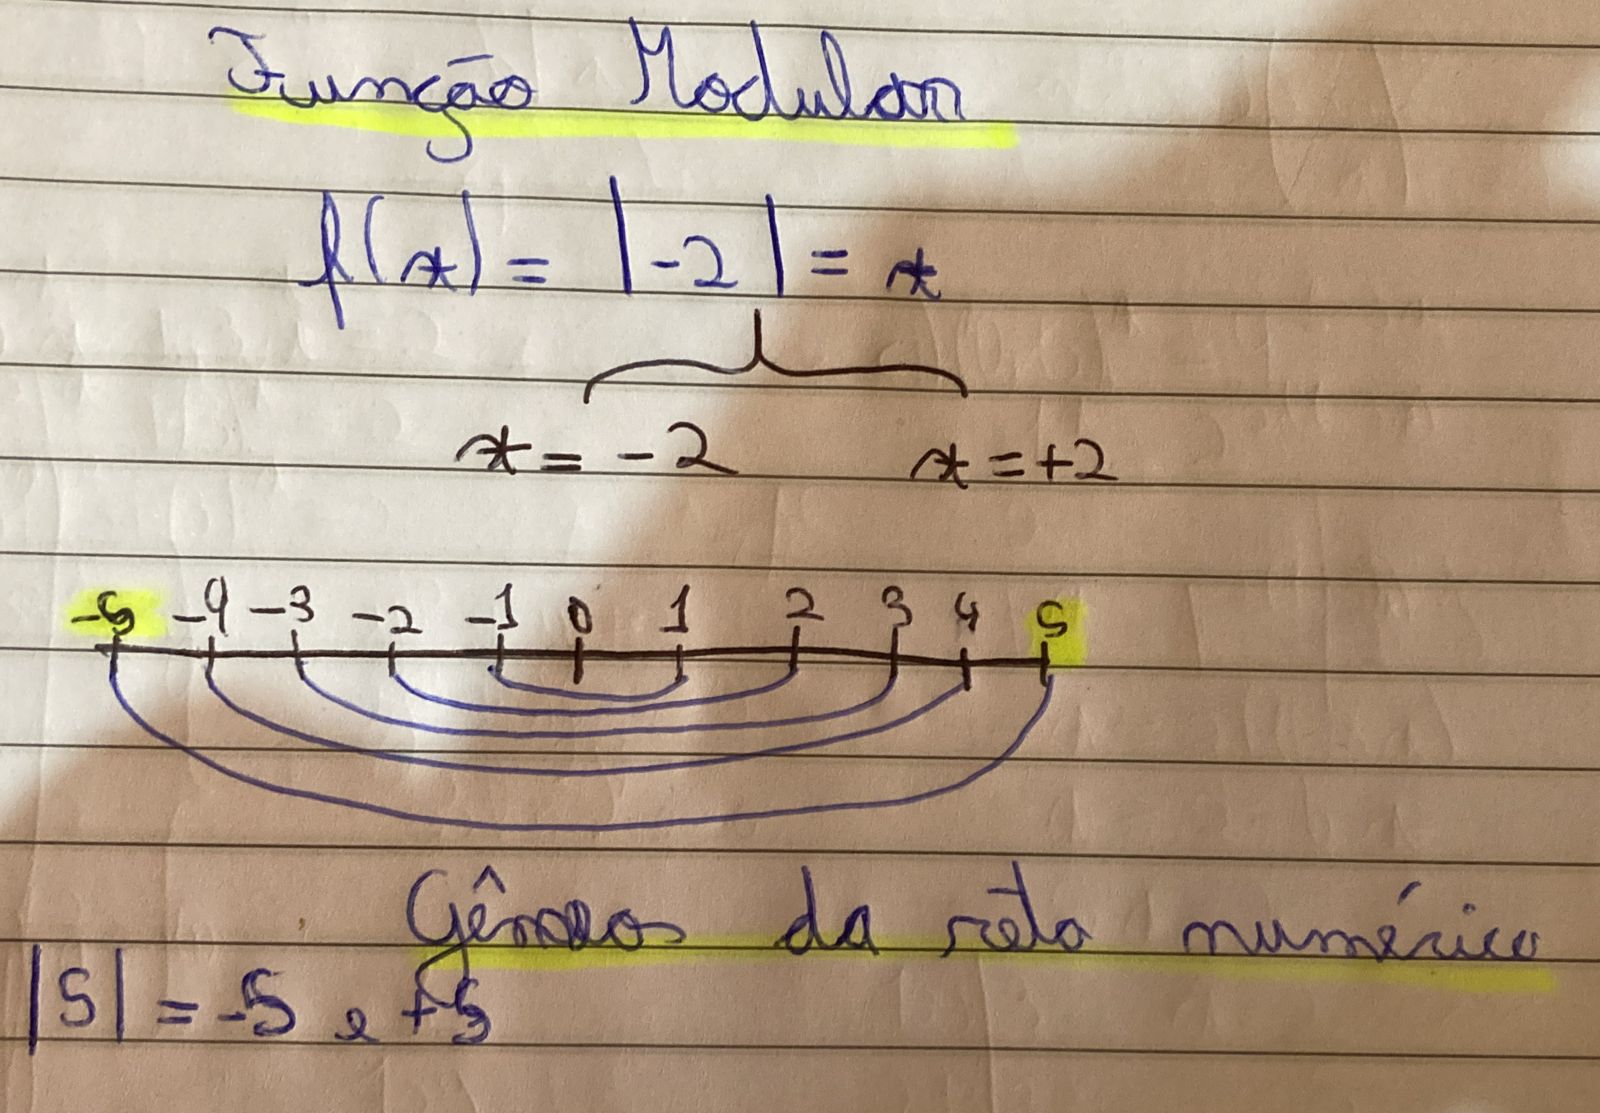 Função Modular
f(x) = |-2| = x
x = -2 x = +2
-5 -4 -3 -2 -1 0 1 2 3 4 5
Gêmeos da reta numérica
|5| = -5 e +5